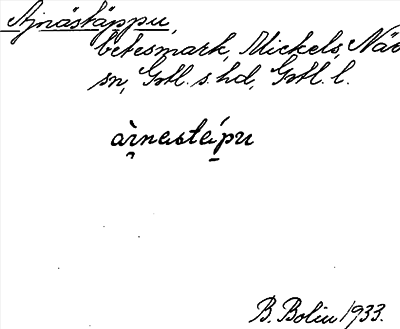 Ajnäskäppu,
betesmark, Mickels, När
sn, Gotl. s. hd, Gotl. l.
àrnestépu
B. Bolin 1933.